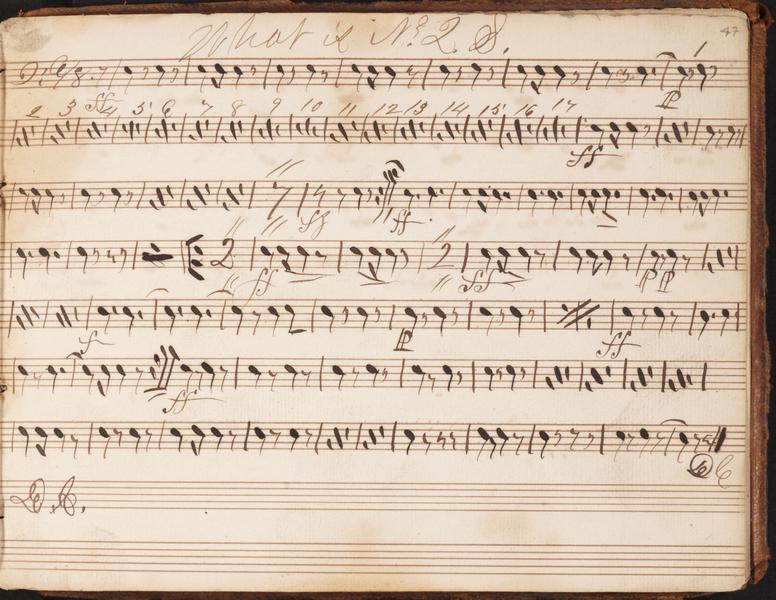 What is No 2 8.
47
1
6/8 ff P
2 3 4 5 6 7 8 9 10 11 12 13 14 15 16 17
ff
7
ff ff
2 2
ff ff PP
P ff
ff
DC
D.C.